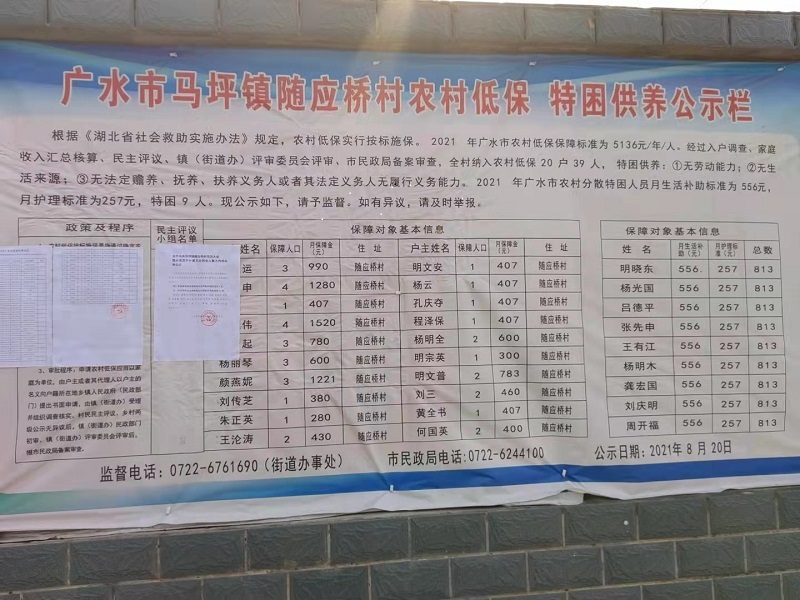 广水市马坪镇随应桥村农村低保 特困供养公示栏
根据《湖北省社会救助实施办法》规定，农村低保实行按标施保。2021 年广水市农村低保保障标准为 5136元/年/人。经过入户调查、家庭
收入汇总核算、民主评议、镇（街道办）评审委员会评审、市民政局备案审查，全村纳入农村低保 20 户 39 人， 特困供养：①无劳动能力；②无生
活来源；③无法定赡养、抚养、扶养义务人或者其法定义务人无履行义务能力。 2021 年广水市农村分散特困人员月生活补助标准为 556元，
月护理标准为257元，特困 9 人。现公示如下，请予监督。如有异议，请及时举报。
政策及程序
3、审批程序：申请农村低保应当以家
庭为单位，由户主或者其代理人以户主的
名义向户籍所在地乡镇人民政府（民政部
门）提出书面申请，由镇（街道办）受理
并组织调查核实、村民民主评议，乡村两
级公示无异议后，镇（街道办）民政部门
初审、镇（街道办）评审委员会评审后，
报市民政局备案审查。
民主评议
小组名单
保障对象基本信息
姓名 保障人口 月保障金（元） 住 址 户主姓名 保障人口 月保障金（元） 住 址
运 3 990 随应桥村 明文安 1 407 随应桥村
申 4 1280 随应桥村 杨云 1 407 随应桥村
1 407 随应桥村 孔庆夺 1 407 随应桥村
伟 4 1520 随应桥村 程泽保 1 407 随应桥村
起 3 780 随应桥村 杨明全 2 600 随应桥村
杨丽琴 3 600 随应桥村 明宗英 1 300 随应桥村
颜燕妮 3 1221 随应桥村 明文普 2 783 随应桥村
刘传芝 1 380 随应桥村 刘三 2 460 随应桥村
朱正英 1 280 随应桥村 黄全书 1 407 随应桥村
王沦涛 2 430 随应桥村 何国英 2 400 随应桥村
保障对象基本信息
姓 名 月生活补助（元） 月护理标准（元） 总数
明晓东 556. 257 813
杨光国 556 257 813
吕德平 556 257 813
张先申 556 257 813
王有江 556 257 813
杨明木 556 257 813
龚宏国 556 257 813
刘庆明 556 257 813
周开福 556 257 813
监督电话：0722-6761690（街道办事处） 市民政局电话:0722-6244100 公示日期：2021年 8 月 20日